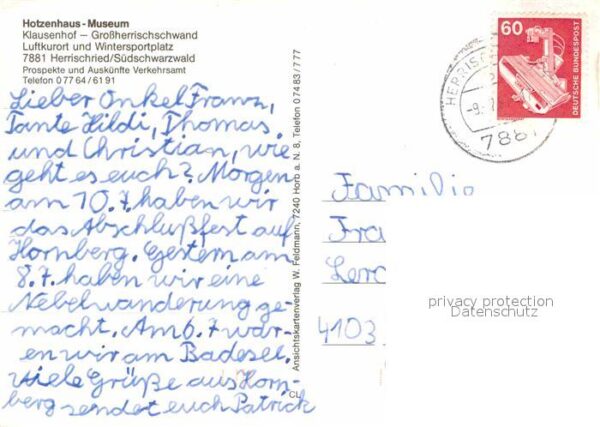 Hotzenhaus-Museum
Klausenhof – Großherrischschwand
Luftkurort und Wintersportplatz
7881 Herrischried/Südschwarzwald
Prospekte und Auskünfte Verkehrsamt
Telefon 0 77 64 / 61 91
Lieber Onkel Franz,
Tante Hildi, Thomas
und Christian, wie
geht es euch? Morgen
am 10.7. haben wir
das Abschlußfest auf
Hornberg. Gestern am
8.7. haben wir eine
Nebelwanderung ge-
macht. Am 6.7 war-
en wir am Badesee.
Viele Grüße aus Horn-
berg sendet euch Patrick
Ansichtskartenverlag W. Feldmann, 7240 Horb a. N. 8, Telefon 074 83/777
CL
60
DEUTSCHE BUNDESPOST
HERRISC
-9.
7881
Familie
Fra
Lerc
4103
privacy protection
Datenschutz